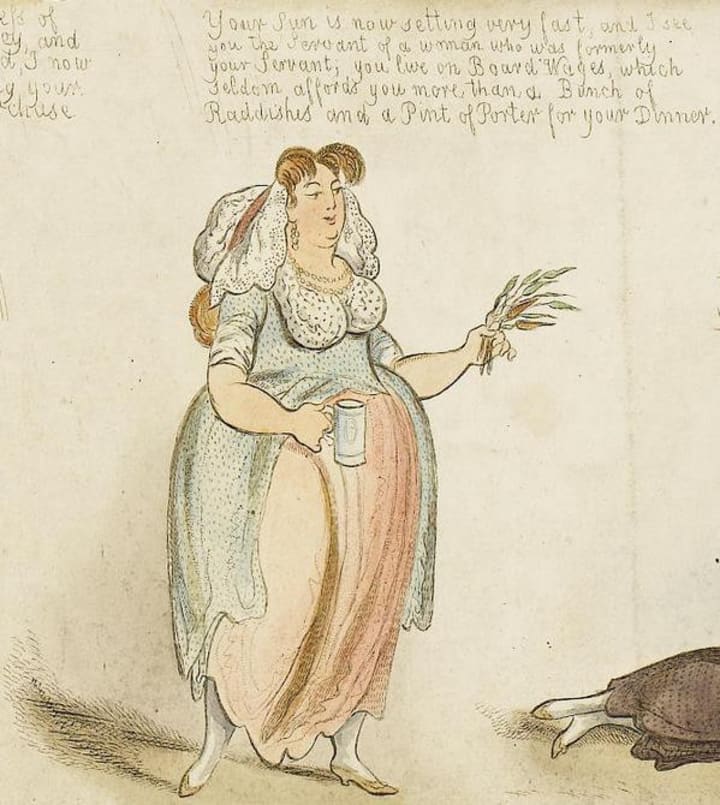 ess of
ey, and
d, I now
g your
chuse
Your Sun is now setting very fast, and I see
you the Servant of a woman who was formerly
your Servant; you live on Board Wages, which
seldom affords you more than a Bunch of
Raddishes and a Pint of Porter for your Dinner.